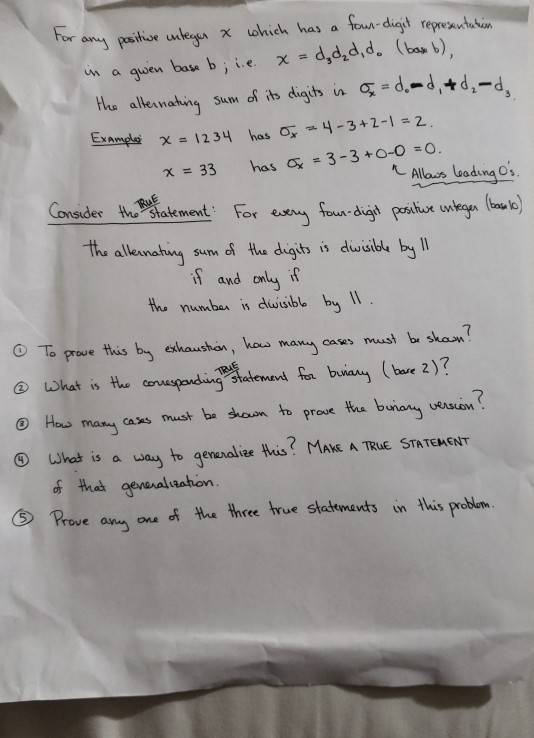 For any positive integer x which has a four-digit representation
in a given base b; i.e. x = d₃d₂d₁d₀ (base b),
the alternating sum of its digits is σₓ = d₀-d₁+d₂-d₃.
Example: x = 1234 has σₓ = 4-3+2-1 = 2.
x = 33 has σₓ = 3-3+0-0 = 0.
↖ Allows leading 0's.
Consider the TRUE statement: For every four-digit positive integer (base 10)
the alternating sum of the digits is divisible by 11
if and only if
the number is divisible by 11.
① To prove this by exhaustion, how many cases must be shown?
② What is the corresponding TRUE statement for binary (base 2)?
③ How many cases must be shown to prove the binary version?
④ What is a way to generalize this? MAKE A TRUE STATEMENT
of that generalization.
⑤ Prove any one of the three true statements in this problem.